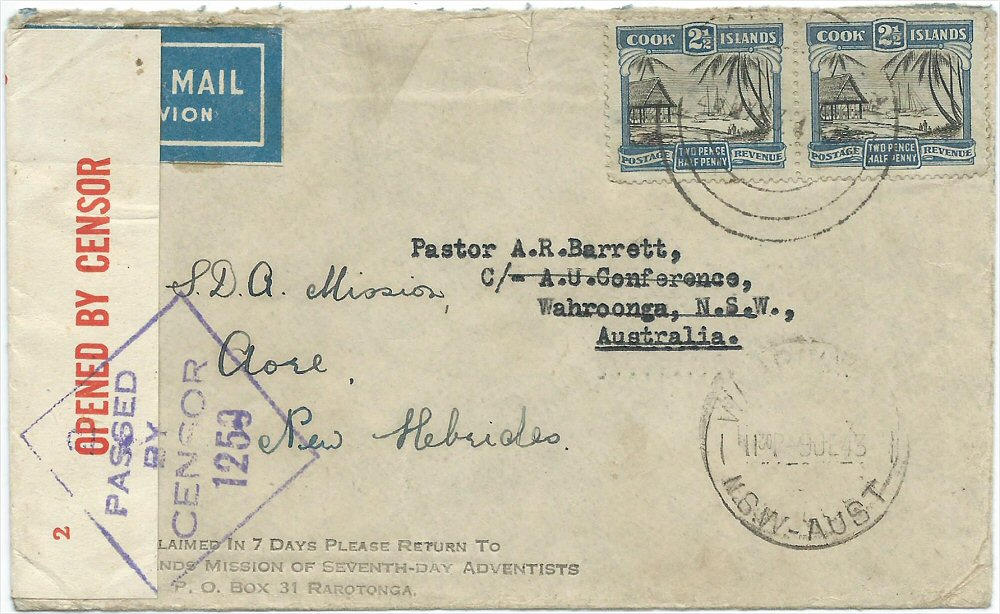 MAIL
VION
COOK 2½ ISLANDS
POSTAGE TWO PENCE HALF PENNY REVENUE
COOK 2½ ISLANDS
POSTAGE TWO PENCE HALF PENNY REVENUE
OPENED BY CENSOR
2
Pastor A.R.Barrett,
C/- A.U.Conference,
Wahroonga, N.S.W.,
Australia.
S.D.A. Mission,
Aore,
New Hebrides.
PASSED
BY
CENSOR
1253
N.S.W-AUST
LAIMED IN 7 DAYS PLEASE RETURN TO
NDS MISSION OF SEVENTH-DAY ADVENTISTS
P. O. BOX 31 RAROTONGA.